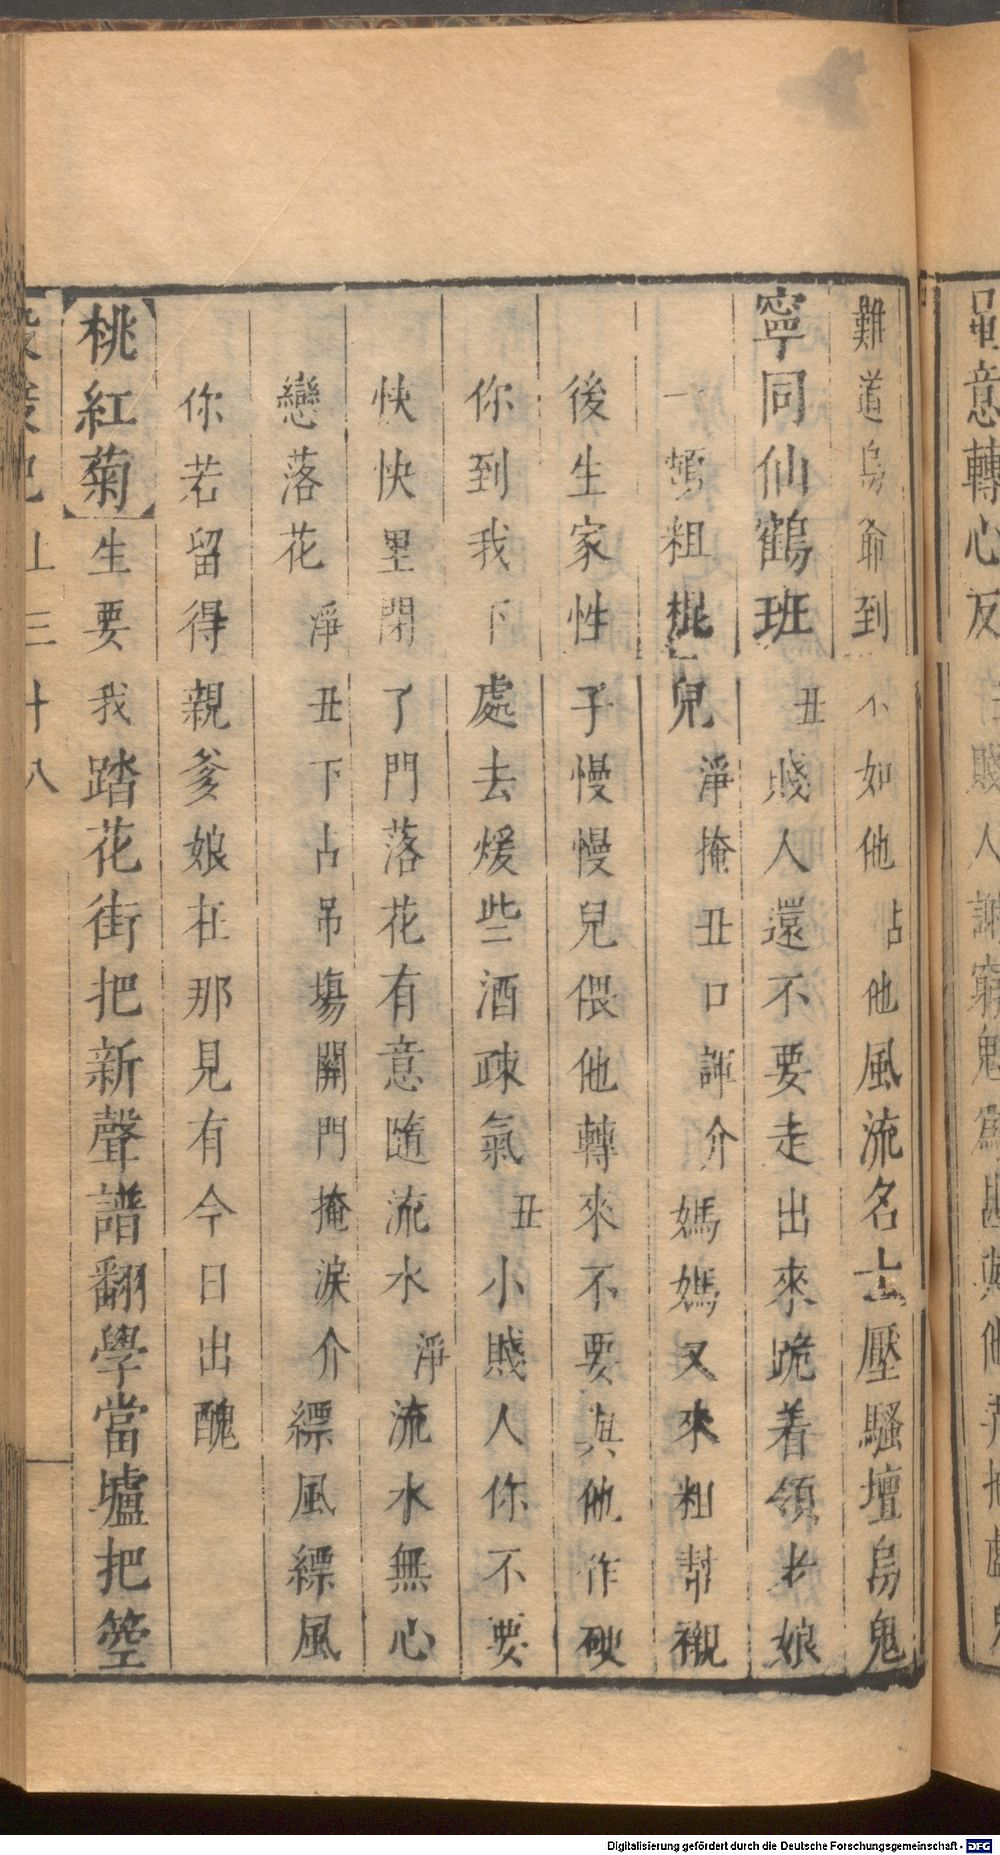 意轉心反
難道烏爺到不如他占他風流名士壓騷壇烏鬼
寧同仙鶴班丑賤人還不要走出來跪着領老娘
一頓粗棍兒淨掩丑口諢介媽媽又來粗幇襯
後生家性子慢慢兒偎他轉來不要與他作硬
你到我下處去煖些酒疎氣丑小賤人你不要
快快里閉了門落花有意隨流水淨流水無心
戀落花淨丑下占吊塲關門掩淚介縹風縹風
你若留得親爹娘在那見有今日出醜
【桃紅菊】生要我踏花街把新聲譜翻學當壚把箜
上三十八
Digitalisierung gefördert durch die Deutsche Forschungsgemeinschaft - DFG